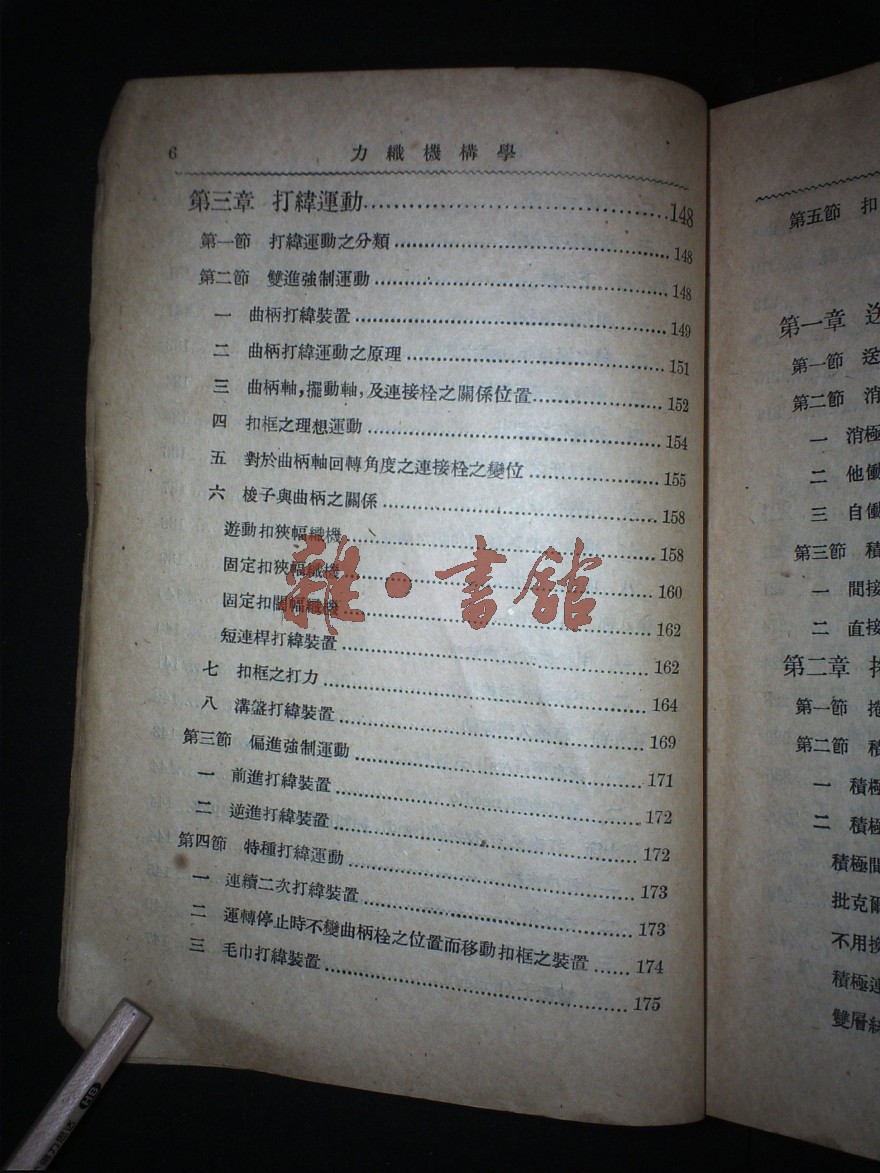 6 力織機構學
第三章 打緯運動 148
第一節 打緯運動之分類 148
第二節 雙進強制運動 148
一 曲柄打緯裝置 149
二 曲柄打緯運動之原理 151
三 曲柄軸，擺動軸，及連接栓之關係位置 152
四 扣框之理想運動 154
五 對於曲柄軸回轉角度之連接栓之變位 155
六 梭子與曲柄之關係 158
遊動扣狹幅織機 158
固定扣狹幅織機 160
固定扣闊幅織機 162
短連桿打緯裝置 162
七 扣框之打力 164
八 溝盤打緯裝置 169
第三節 偏進強制運動 171
一 前進打緯裝置 172
二 逆進打緯裝置 172
第四節 特種打緯運動 173
一 連續二次打緯裝置 173
二 運轉停止時不變曲柄栓之位置而移動扣框之裝置 174
三 毛巾打緯裝置 175
雜·書館
HB
第五節 扣
第一章 送
第一節 送
第二節 消
一 消極
二 他働
三 自働
第三節 積
一 間接
二 直接
第二章 捲
第一節 捲
第二節 積
一 積極
二 積極
積極間
批克爾
不用換
積極連
雙層